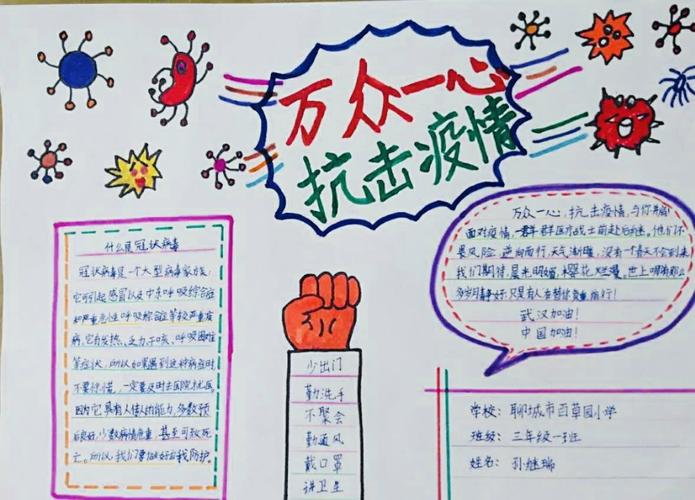 万众一心
抗击疫情
什么是冠状病毒
冠状病毒是一个大型病毒家族,
它可引起感冒以及中东呼吸综合征
和严重急性呼吸综合征等较严重疾
病,它有发热、乏力、干咳、呼吸困难
等症状,所以如果遇到这种病症时
不要惊慌,一定要及时去医院就医。
因为它具有人传人的能力,多数预
后良好,少数病情危重,甚至可致死
亡。所以,我们要做好自我防护。
少出门
勤洗手
不聚会
勤通风
戴口罩
讲卫生
万众一心,抗击疫情,与你并肩!
面对疫情,一群群医疗战士前赴后继。他们不
畏风险,逆向而行,天气渐暖,没有一个春天不会到来
我们期待,晨光明媚,樱花烂漫,世上哪有那么
多岁月静好,只是有人在替你负重前行!
武汉加油!
中国加油!
学校:聊城市百草园小学
班级:三年级一班
姓名:孙继瑞